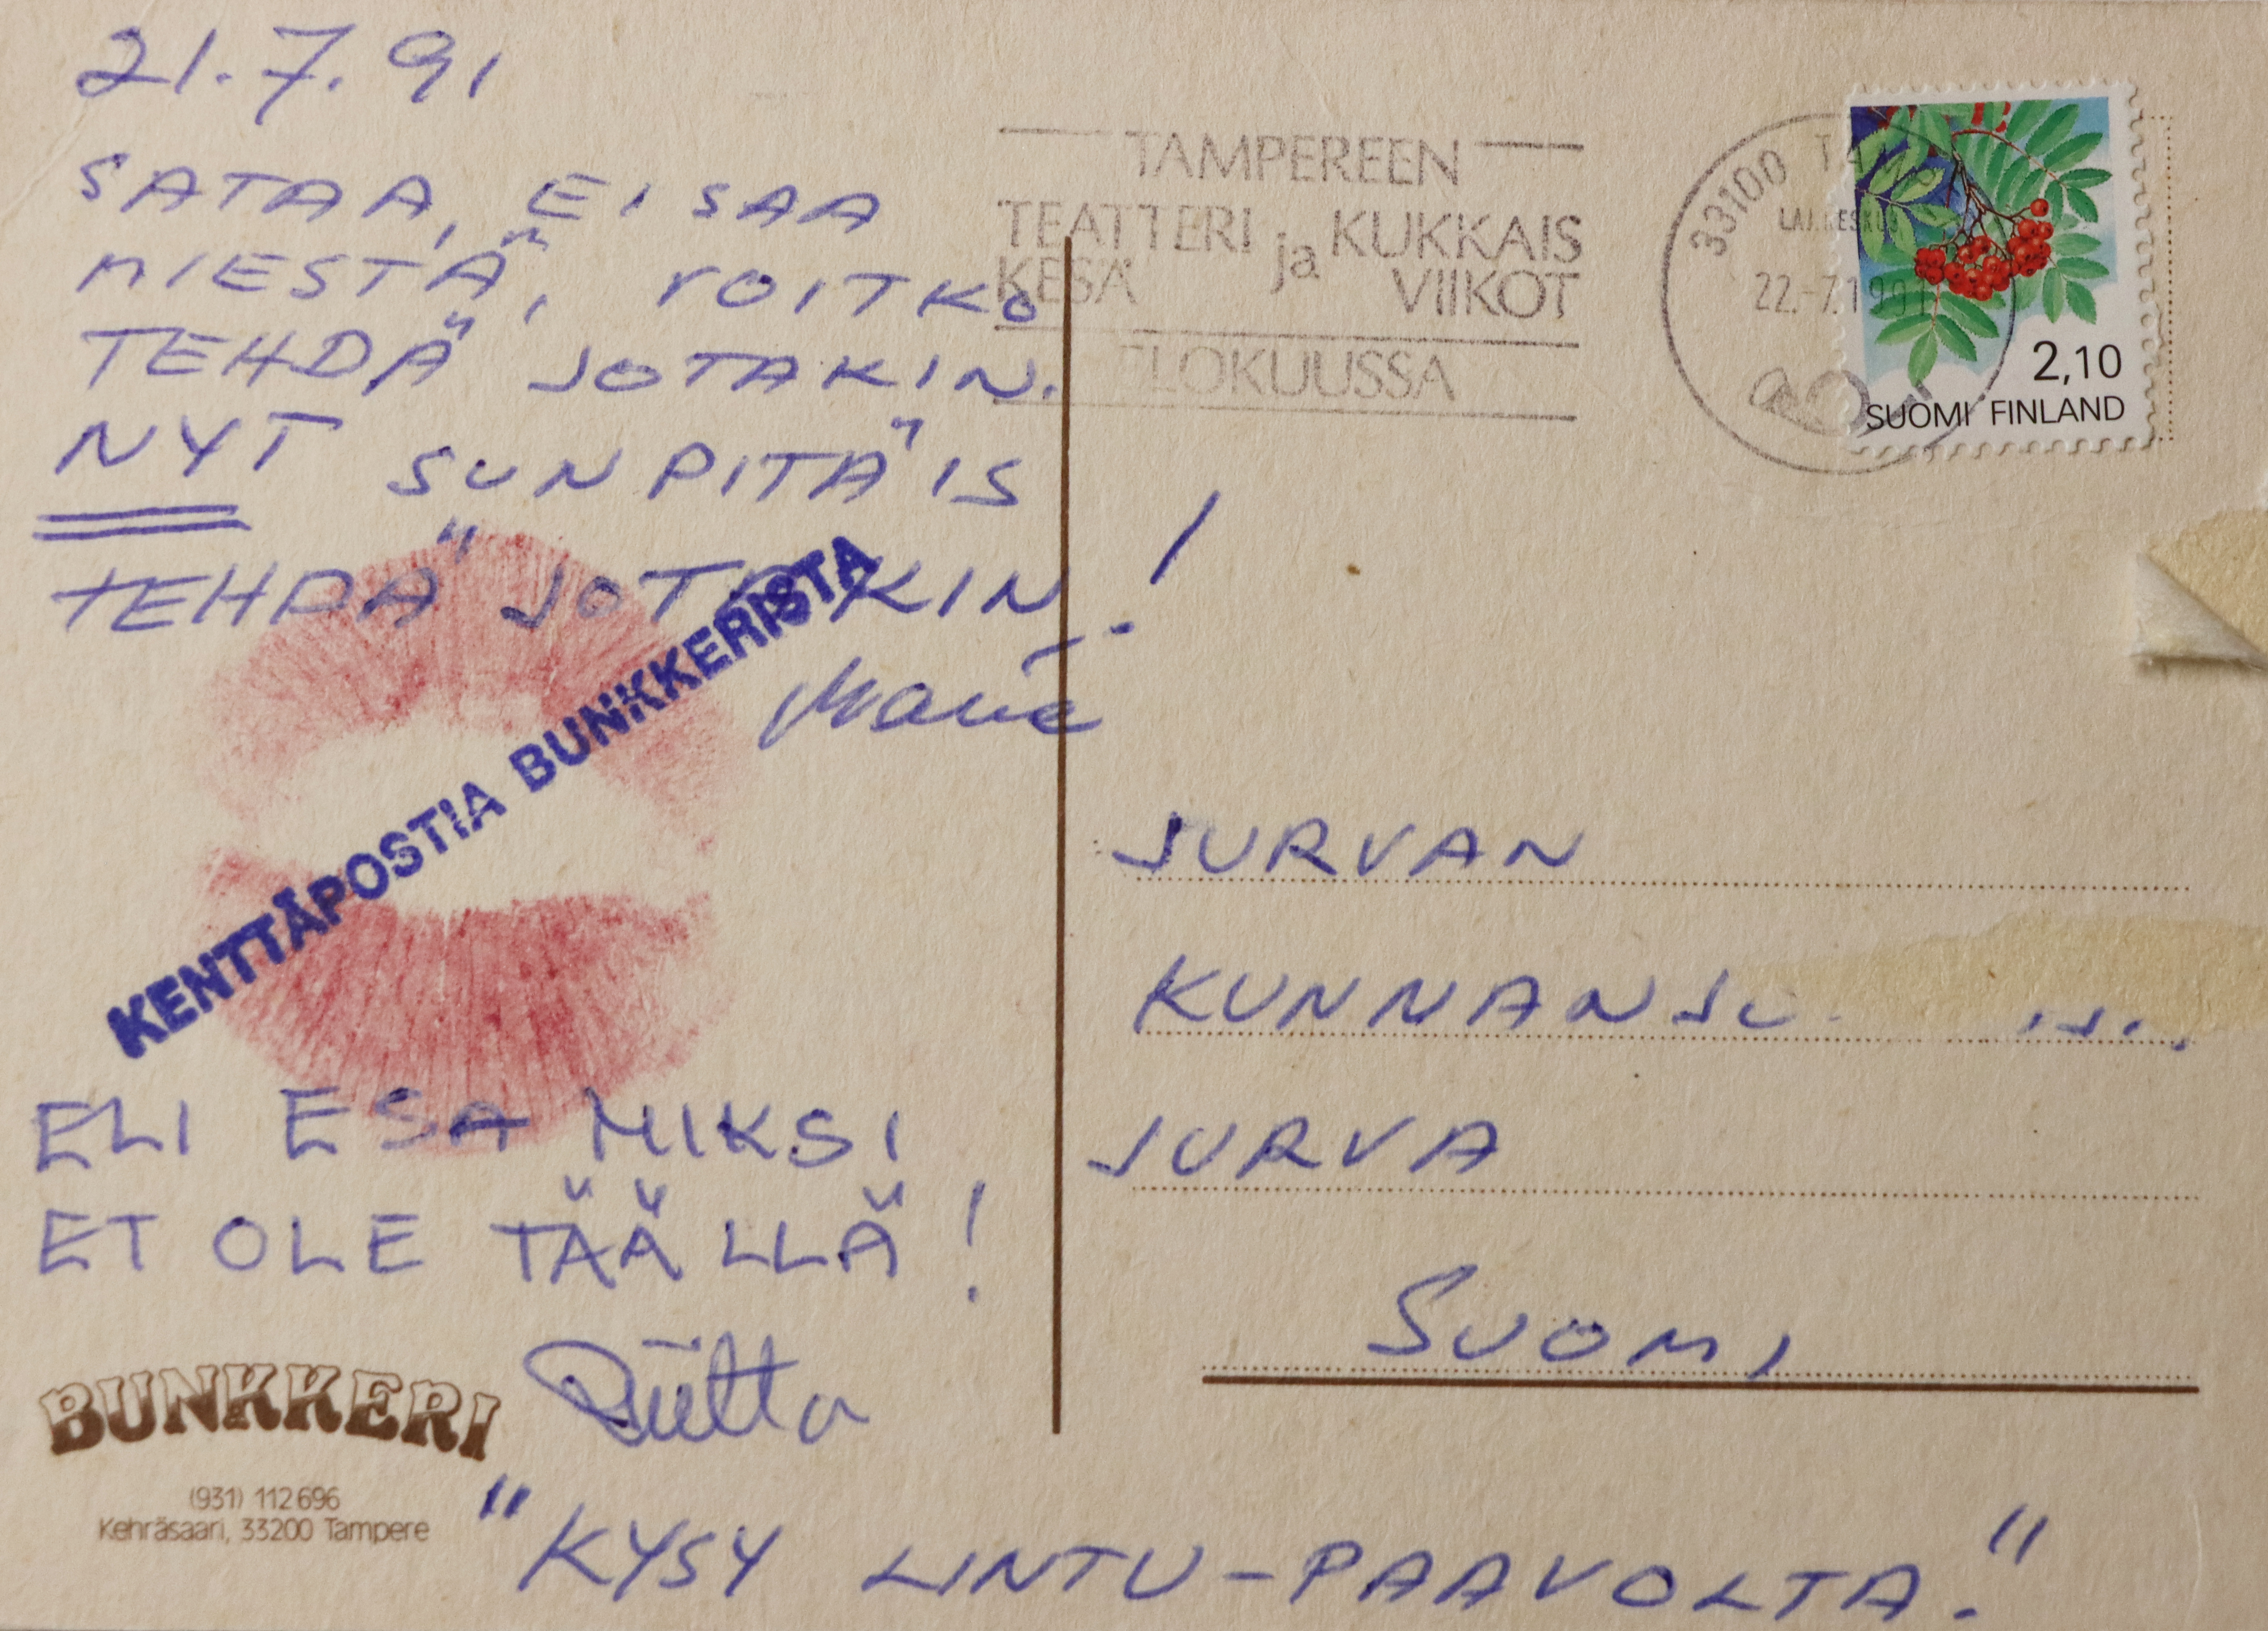 21.7.91
SATAA, EI SAA
MIESTÄ, VOITKO
TEHDÄ JOTAKIN.
NYT SUN PITÄIS
TEHDÄ JOTAKIN!
KENTTÄPOSTIA BUNKKERISTA
ELI ESA MIKSI
ET OLE TÄÄLLÄ!
Riitta
BUNKKERI
(931) 112 696
Kehräsaari, 33200 Tampere
TAMPEREEN
TEATTERI ja KUKKAIS
KESÄ VIIKOT
ELOKUUSSA
33100
22.-7.1991
2,10
SUOMI FINLAND
JURVAN
JURVA
SUOMI
"KYSY LINTU-PAAVOLTA."